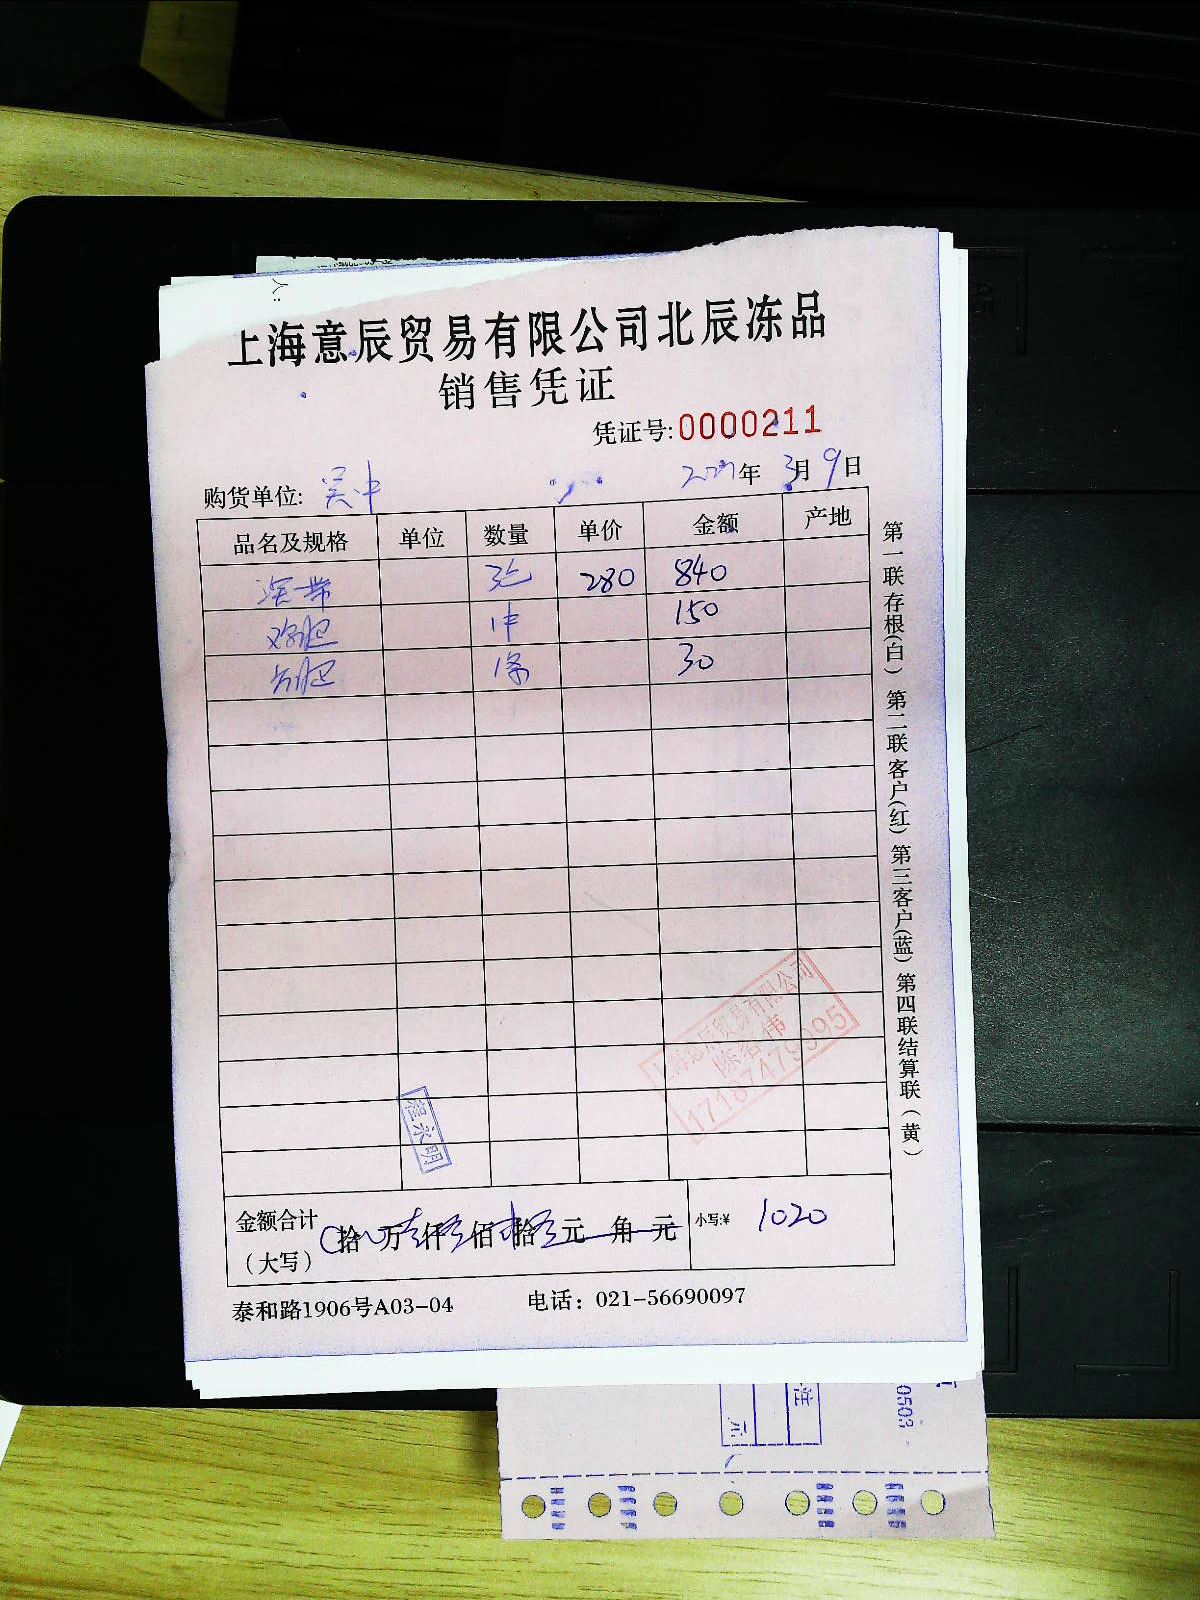 上海意辰贸易有限公司北辰冻品
销售凭证
凭证号:0000211
年 3月 9日
购货单位: 吴中
品名及规格 单位 数量 单价 金额 产地
280 840
150
1条 30
上海北辰贸易有限公司
陈名伟
17187479995
程永明
金额合计 (大写) 拾 万 仟 佰 拾 元 角 元 小写:¥ 1020
泰和路1906号A03-04 电话：021-56690097
第一联存根(白) 第二联客户(红) 第三客户(蓝) 第四联结算联(黄)
人:
注
0503